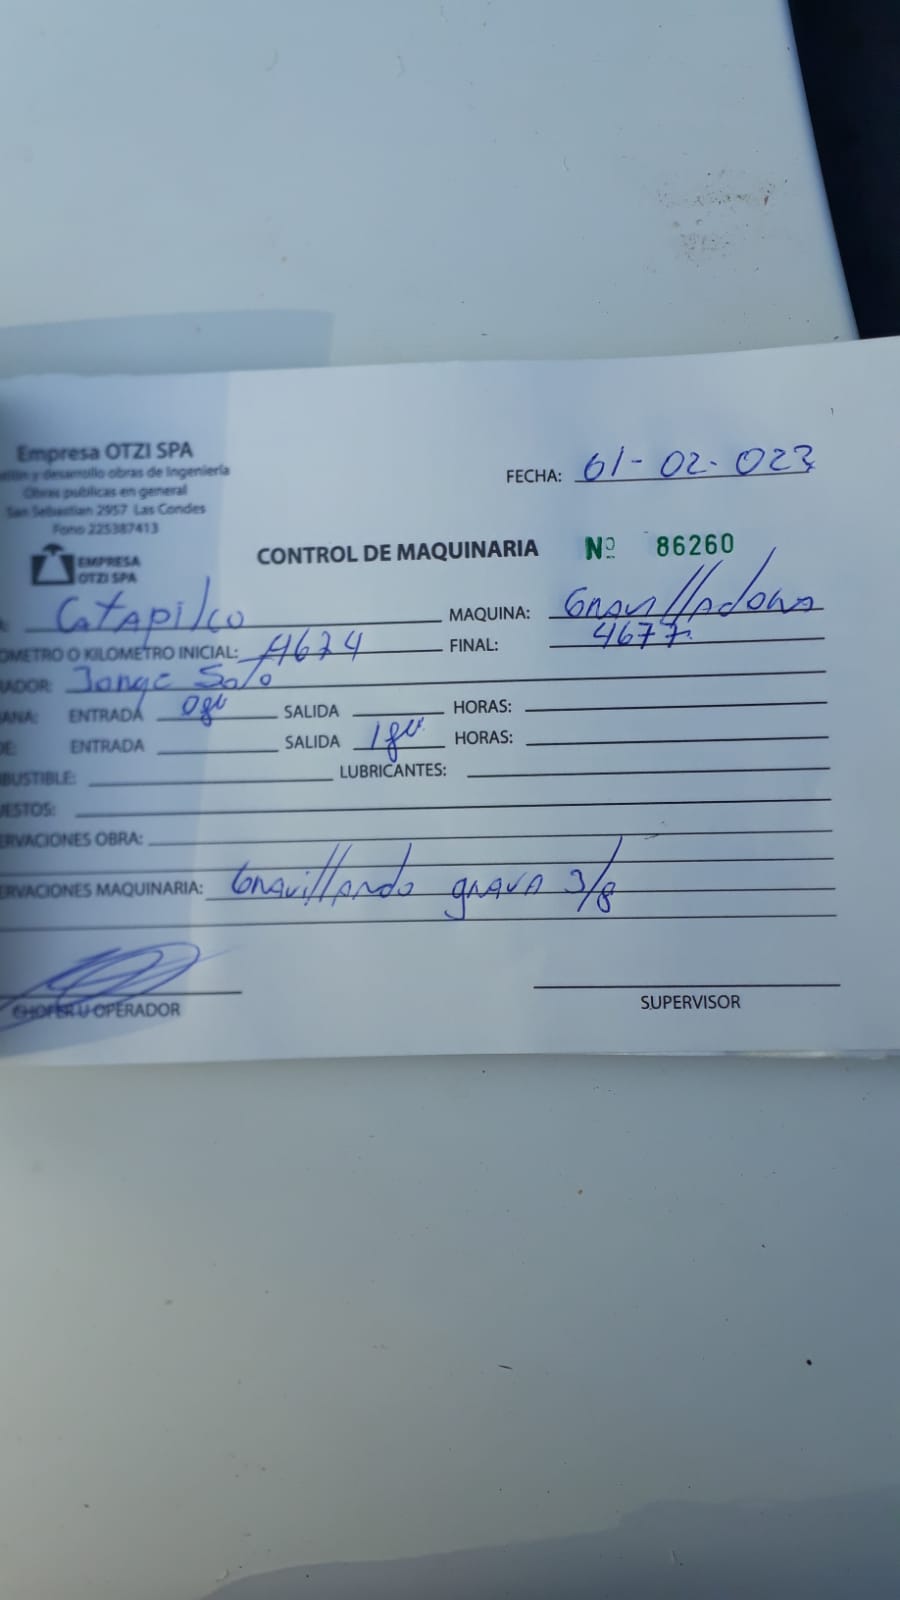 Empresa OTZI SPA
ión y desarrollo obras de Ingeniería
Obras publicas en general
San Sebastian 2957 Las Condes
Fono 225387413
FECHA: 01-02-023
EMPRESA
OTZI SPA
CONTROL DE MAQUINARIA Nº 86260
Catapilco MAQUINA: Gravilladora
OMETRO O KILOMETRO INICIAL: 4674 FINAL: 4677
RADOR: Jorge Soto
ANA: ENTRADA 08 SALIDA HORAS:
DE: ENTRADA SALIDA 18 HORAS:
BUSTIBLE: LUBRICANTES:
ESTOS:
ERVACIONES OBRA:
ERVACIONES MAQUINARIA: Gravillando grava 3/8
CHOFER U OPERADOR SUPERVISOR